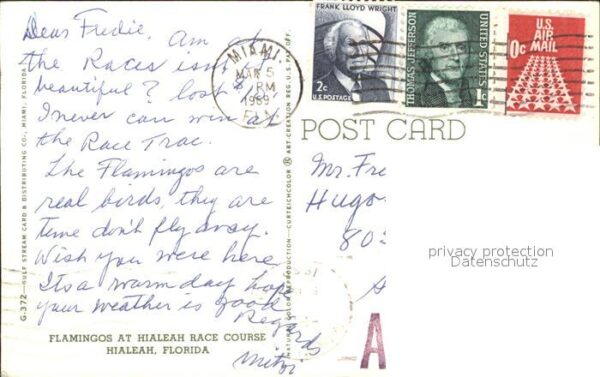 Dear Fredie, Am at
the Races isn't it
beautiful? lost $
I never can win at
the Race Trac.
The Flamingos are
real birds, they are
time don't fly away.
Wish you were here
Its a warm day hope
your weather is good
Regards
Mitzi
FLAMINGOS AT HIALEAH RACE COURSE
HIALEAH, FLORIDA
G-372 - GULF STREAM CARD & DISTRIBUTING CO., MIAMI, FLORIDA
NATURAL COLOR REPRODUCTION - CURTEICHCOLOR ® ART-CREATION REG. U.S. PAT. OFF.
MIAMI
MAR 5
PM
1969
FLA
FRANK LLOYD WRIGHT
2c
U.S. POSTAGE
THOMAS JEFFERSON
UNITED STATES
1c
U.S.
AIR
MAIL
10c
POST CARD
Mr. Fre
Hugo
80
privacy protection
Datenschutz
A